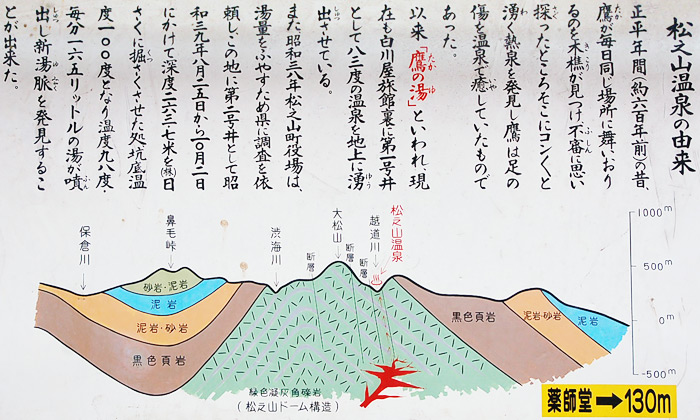 松之山温泉の由来
正平年間(約六百年前)の昔、
鷹が毎日同じ場所に舞いおり
るのを木樵が見つけ不審に思い
探ったところそこにコンくと
湧く熱泉を発見し鷹は足の
傷を温泉で癒していたもので
あった。
以来「鷹の湯」といわれ、現
在も白川屋旅館裏に第一号井
として八三度の温泉を地上に湧
出させている。
また昭和三八年松之山町役場は、
湯量をふやすため県に調査を依
頼し、この地に第二号井として昭
和三九年八月二五日から一〇月二日
にかけて深度二六三七米を(株)日
さくに掘さくさせた処坑底温
度一〇〇度となり温度九八度・
毎分一六五リットルの湯が噴
出し新湯脈を発見するこ
とが出来た。
保倉川
鼻毛峠
渋海川
断層
大松山
断層
越道川
断層
松之山温泉
1000m
500m
0m
-500m
砂岩・泥岩
泥岩
泥岩・砂岩
黒色頁岩
黒色頁岩
泥岩・砂岩
泥岩
緑色凝灰角礫岩
(松之山ドーム構造)
薬師堂➡130m